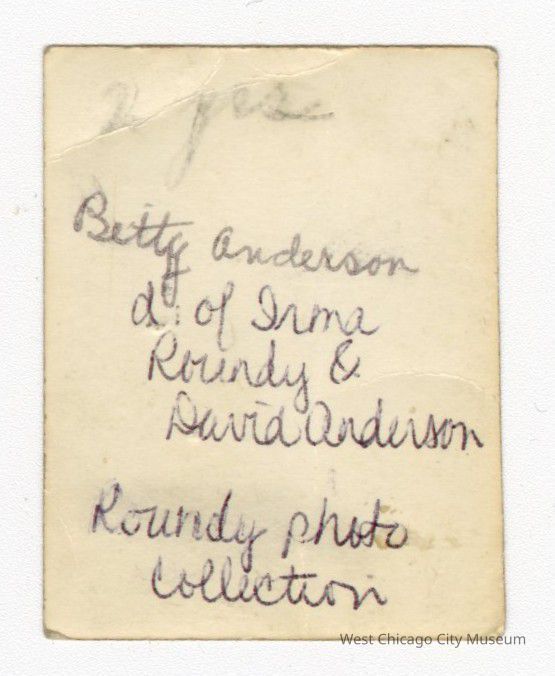 2 yrs
Betty Anderson
d. of Irma
Roundy &
David Anderson
Roundy photo
collection
West Chicago City Museum